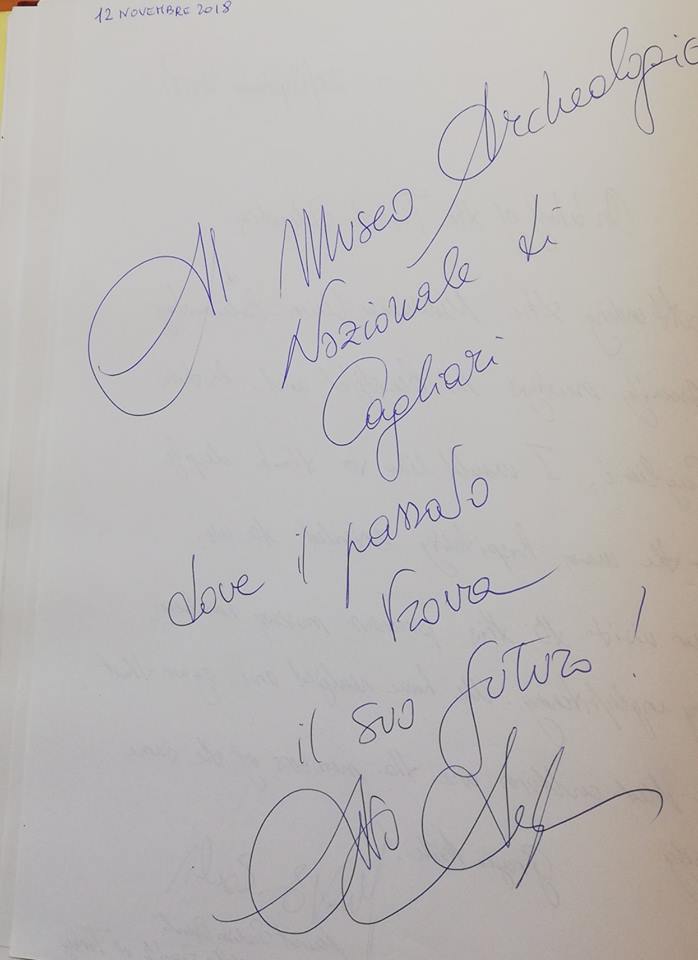 12 NOVEMBRE 2018
Al Museo Archeologic
Nazionale di
Cagliari
dove il passato
trova
il suo futuro!